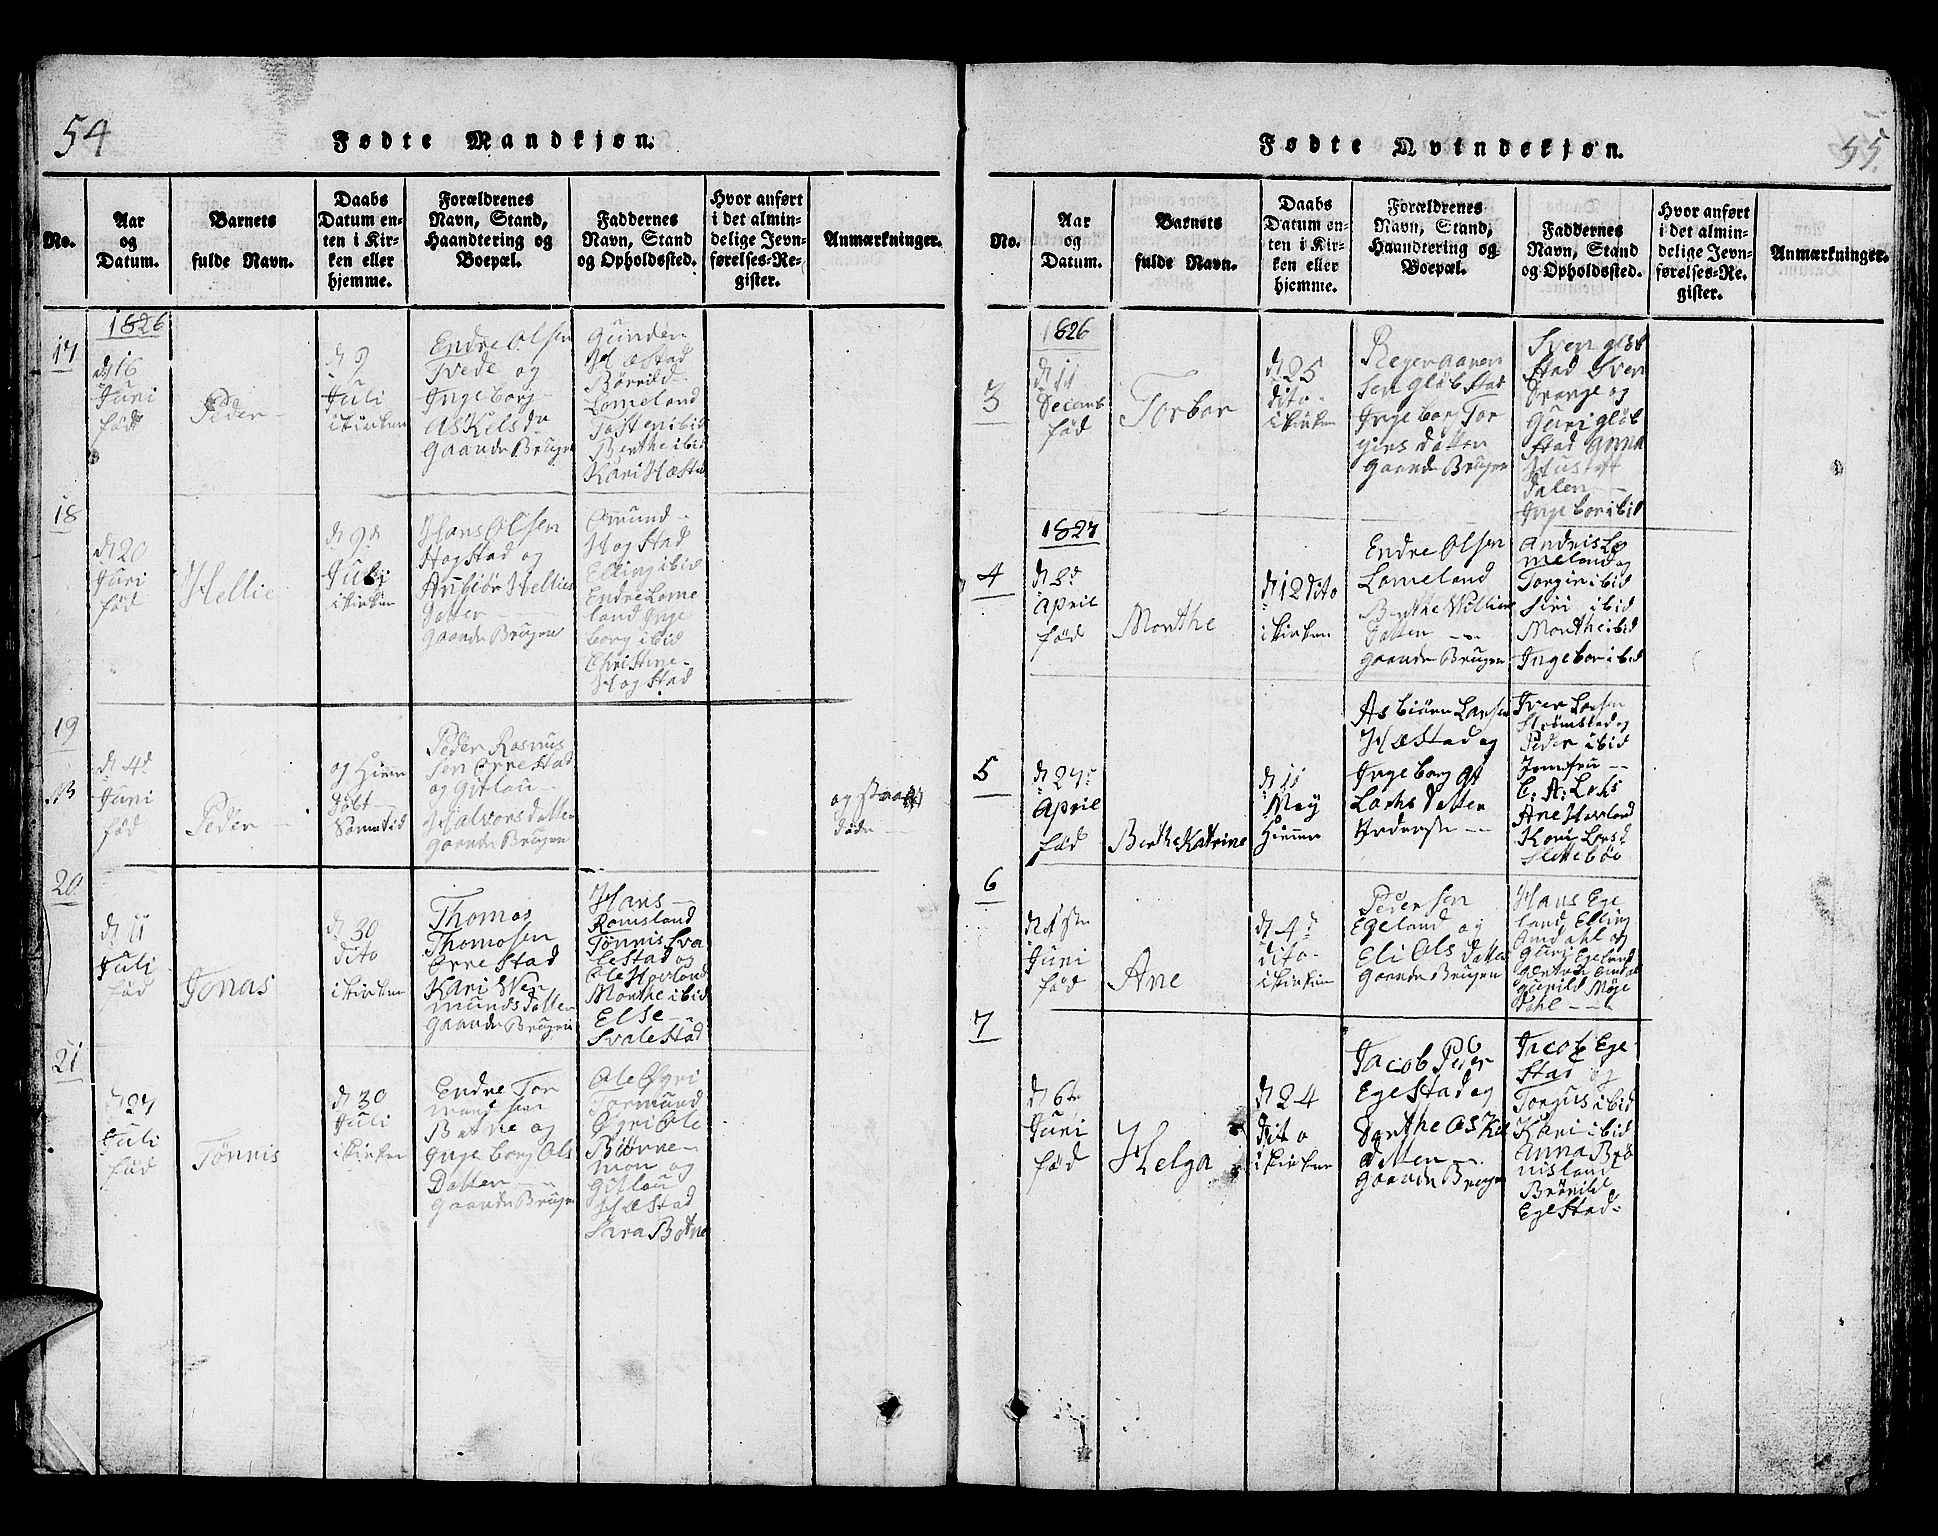 54
Fødte Mandkjøn.
No.
Aar
og
Datum.
Barnets
fulde Navn.
Daabs
Datum en-
ten i Kir-
ken eller
hjemme.
Forældrenes
Navn, Stand,
Haandtering og
Boepæl.
Faddernes
Navn, Stand
og Opholdssted.
Hvor anført
i det almin-
delige Jevn-
førelses-Re-
gister.
Anmærkninger.
17
1826
d 16
Juni
fød
Peder
d 9
Juli
i kirken
Endre Olsen
Tvede og
Ingeborg
Askels da
Gaands Brugen
Gunder
Hæstad
Børrild
Lomeland
Tosten ibid
Berthe ibid
Kari Hæstad
18
d 20
Juni
fød
Hellie
d 9d
Juli
i kirken
Hans Olsen
Hogstad og
Anbiør Hellies
Datter
Gaands Brugen
Omund
Hogstad
Elling ibid
Endre Lome
land Inge
borg ibid
Christine
Hogstad
19
d 4d
Juni
fød
Peder
og Hiemme
Døbt
Samme tid
Peder Rasmus
sen Ørrestad
og Gitlou
Halvorsdatter
Gaands Brugen
og straks
døde
20
d 11
Juli
fød
Jonas
d 30
dito
i kirken
Thomas
Thomosen
Ørrestad
Kari Ver
munds datter
Gaands Brugen
Hans
Romsland
Tønnis Sva
lestad og
Ole Hovland
Monthe ibid
Else
Svalestad
21
d 27
Juli
fød
Tønnis
d 30
Juli
i kirken
Endre Tor
mundsen
Botne og
Ingeborg Ols
Datter
Gaands Brugen
Ole Øgri
Tormund
Øgri Ole
Biørne
mon og
Gitlou
Hæstad
Sara Botne
55.
Fødte Qvindekjøn.
No.
Aar
og
Datum.
Barnets
fulde Navn.
Daabs
Datum en-
ten i Kir-
ken eller
hjemme.
Forældrenes
Navn, Stand,
Haandtering og
Boepæl.
Faddernes
Navn, Stand
og Opholdssted.
Hvor anført
i det almin-
delige Jevn-
førelses-Re-
gister.
Anmærkninger.
3
1826
d 11
Decemb
fød
Torbor
d 25
dito
i kirken
Reyer Aanen
sen Gløbstad
Ingeborg Tor
giers datter
Gaands Brugen
Sven Gløb
stad Sven
Drange og
Guri Gløb
stad Anna
Hustoft
dalen
Ingebor ibid
4
1827
d 8d
April
fød
Monthe
d 12 dito
i kirken
Endre Olsen
Lomeland
Berthe Villiems
Datter
Gaands Brugen
Andris Lo
meland og
Torgin ibid
Siri ibid
Monthe ibid
Ingebor ibid
5
d 27
April
fød
Berthe Katrine
d 11
May
Hiemme
Asbiørn Larsen
Hæstad og
Ingeborg
Larhs Datter
Iver Larsen
Strømstad og
Peder ibid
Jomfru
C. A. Lohs
Ane Hovland
Kari Larsd
Slettebøe
6
d 1ste
Juni
fød
Ane
d 4d
dito
i kirken
Peder Sen
Egeland og
Eli Ols datter
Gaands Brugen
Hans Ege
land Elling
Omdahl og
Guri Egeland
Gunild Møje
dahl
7
d 6te
Juni
fød
Helga
d 24
Dito
i kirken
Jacob Peder
Egestad og
Berthe Askil
datter
Gaands Brugen
Jacob Ege
stad og
Torgus ibid
Kari ibid
Anna Brø
nisland
Brønild
Egestad